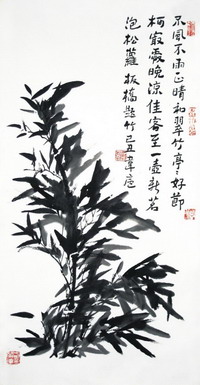 不風不雨正晴和翠竹亭〻好節
柯最愛晚涼佳客至一壺新茗
泡松蘿 板橋題竹 己丑